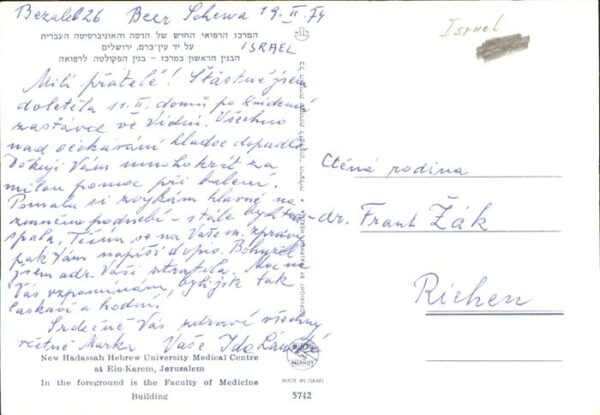 Bezalel 26 Beer Schewa 19.II.74
Israel
ISRAEL
המרכז הרפואי החדש של הדסה והאוניברסיטה העברית
על יד עין־כרם, ירושלים
הבנין הראשון במרכז - בנין הפקולטה לרפואה
Milí přátelé! Šťastně jsem
doletěla 11.II. domů po
zastávce ve Vídni. Všechno
nad očekávání hladce dopadlo.
Děkuji Vám mnohokrát za
milou pomoc při balení.
Pomalu si zvykám hlavně na
změněné podnebí - stále bych
spala. Těším se na Vaše zprávy
pak Vám napíši dopis. Bohužel
jsem adr. Vaši ztratila. Moc na
Vás vzpomínám, byli jste tak
laskaví a hodní.
Srdečně Vás zdraví všechny
včetně Marka Vaše Ida
Ctěná rodina
dr. Frant Žák
Riehen
New Hadassah Hebrew University Medical Centre
at Ein-Karem, Jerusalem
In the foreground is the Faculty of Medicine
Building
PALPHOT
MADE IN ISRAEL
5742